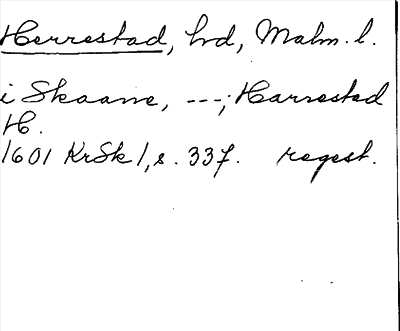 Herrestad, hd, Malm. l.
i Skaane, ---; Harrestad
H.
1601 KrSk 1, s. 33f. regest.